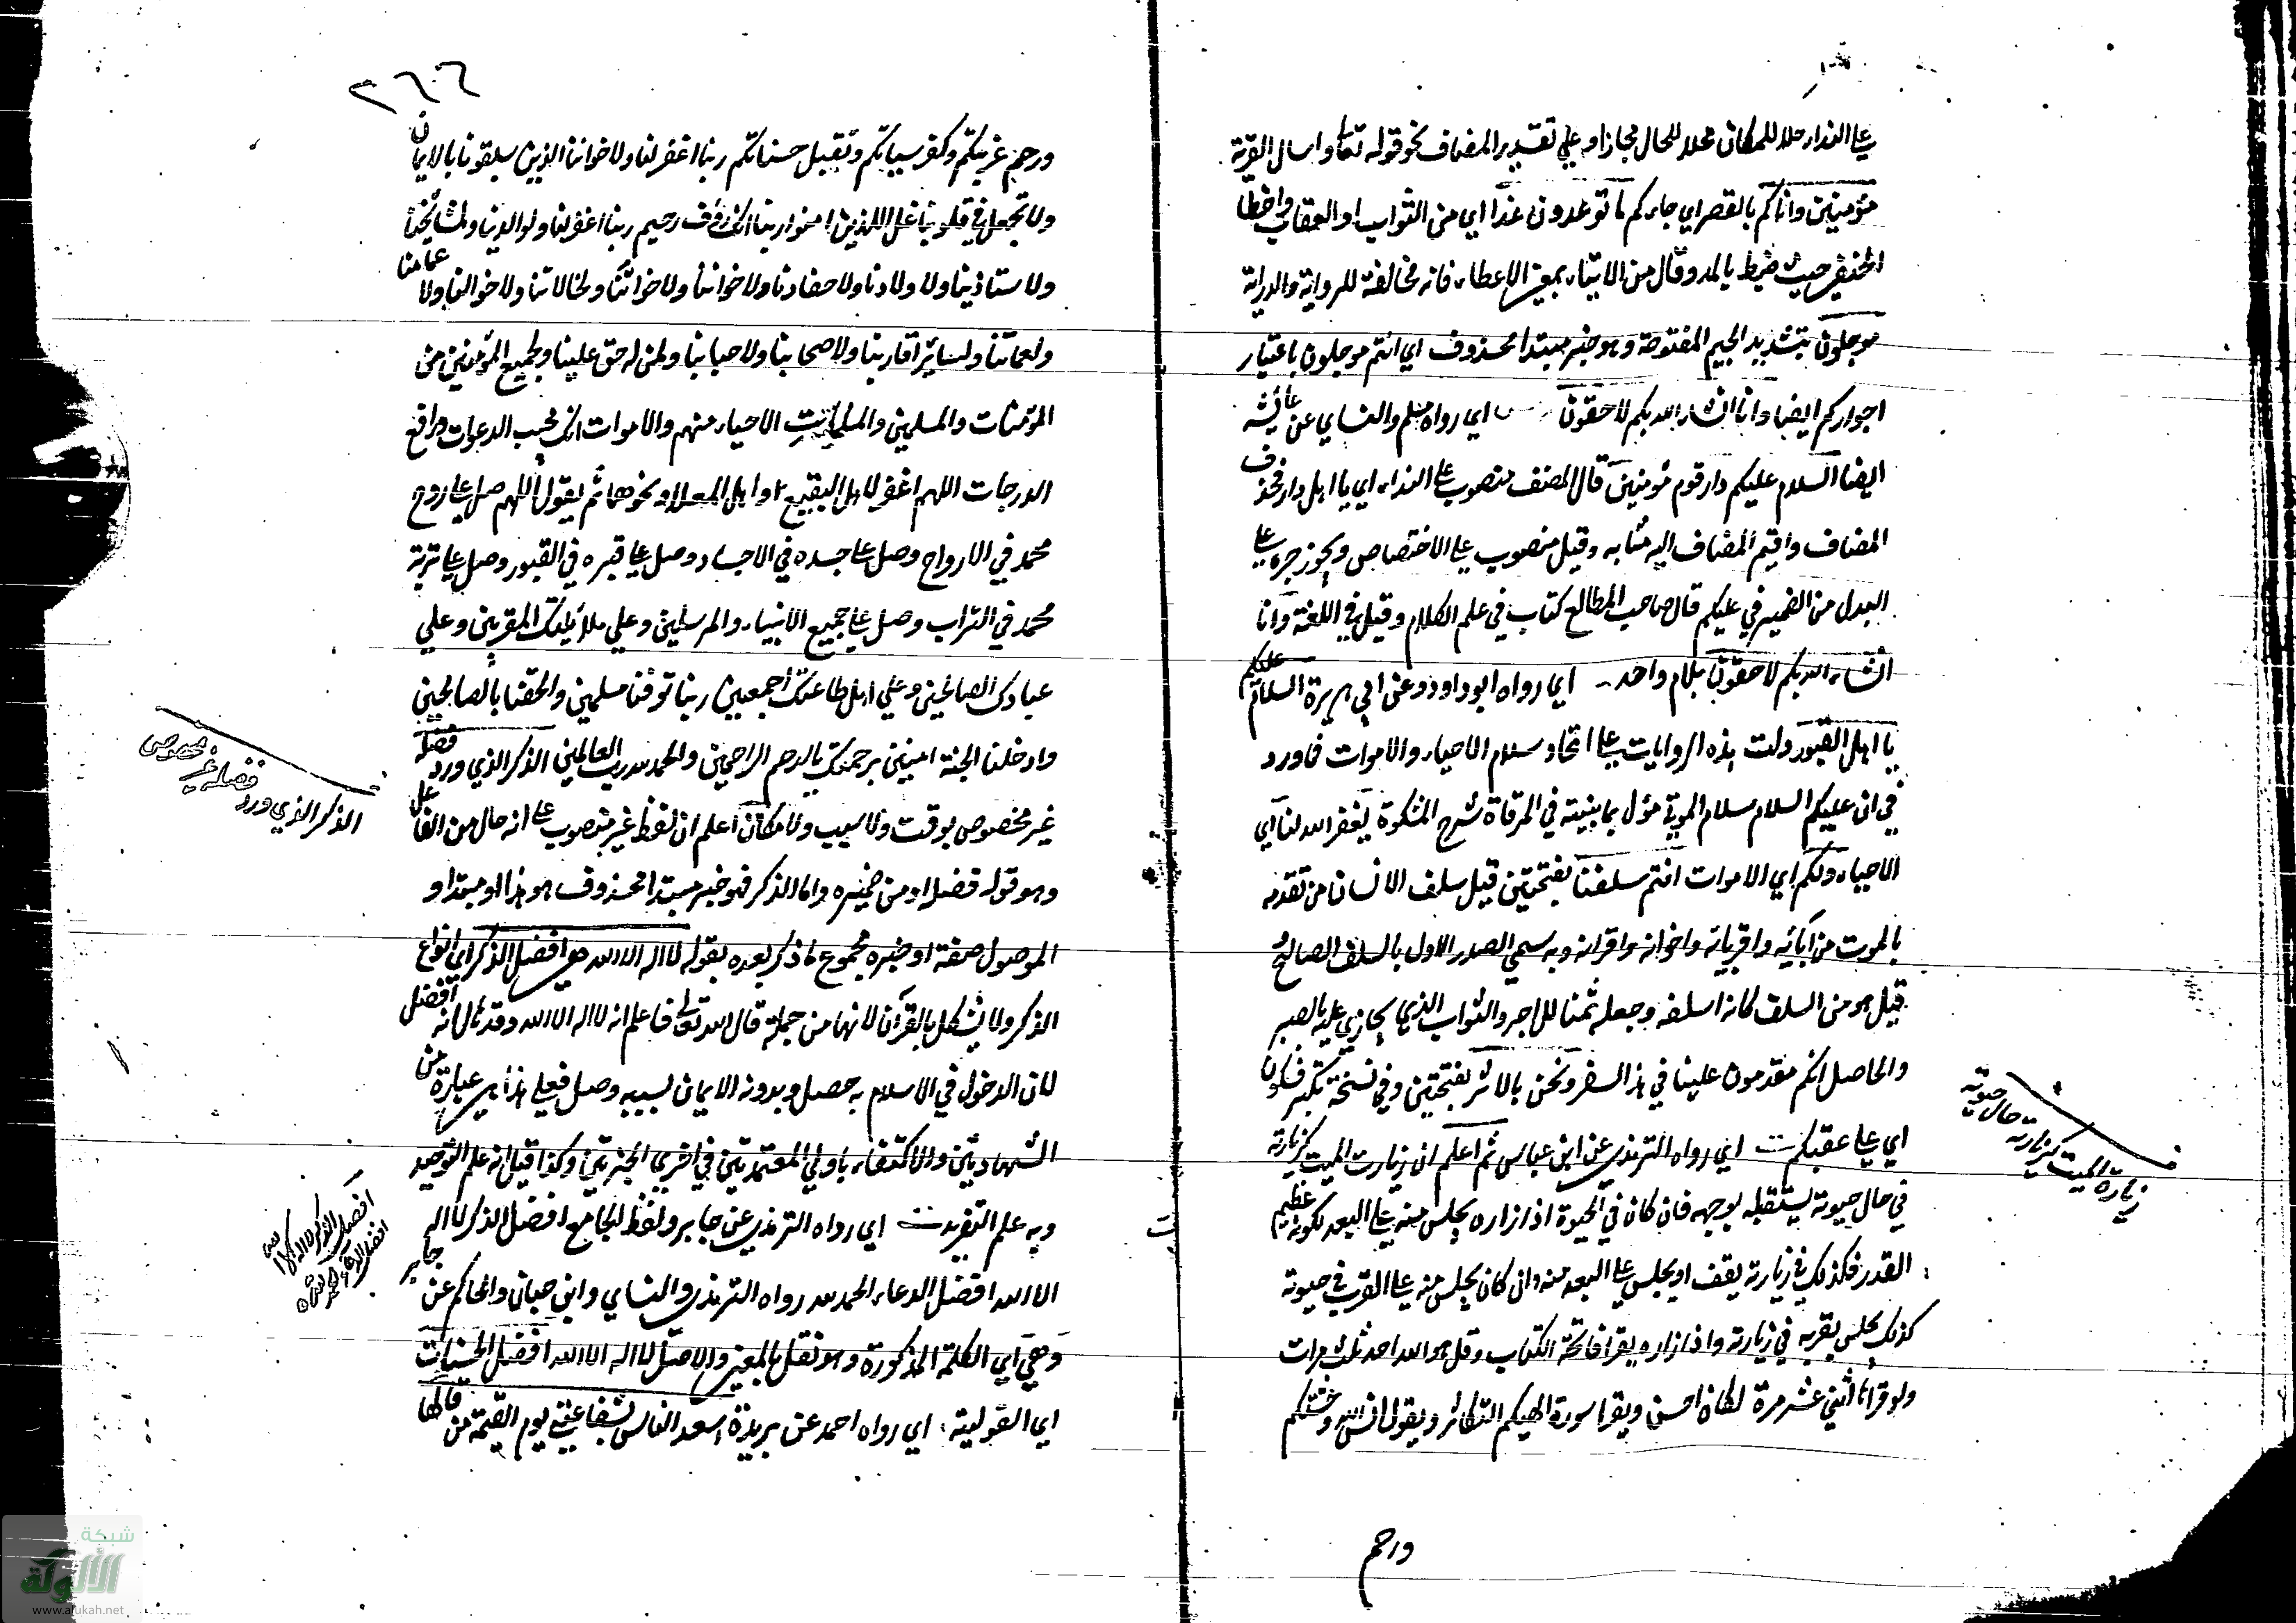 علي النداء حلا للمكان محلا للحال مجازا او علي تقدير المضاف نحو قوله تعا واسال القرية
مؤمنين واتاكم بالقصر اي جاءكم ما توعدون غدا اي من الثواب او العقاب واخطا
الحنفي حيث ضبط بالمد وقال من الايتاء بمعني الاعطاء فانه مخالفة للرواية والدراية
موجلون بتشديد الجيم المفتوحة وهو خبر مبتدا محذوف اي انتم موجلون باعتبار
اجوركم ايضا وانا انشاء الله بكم لاحقون اي رواه مسلم والنساي عن عايشه
ايضا السلام عليكم دار قوم مؤمنين قال المصنف منصوب علي النداء اي يا اهل دار فحذف
المضاف واقيم المضاف اليه مقامه وقيل منصوب علي الاختصاص ويجوز جره علي
البدل من الضمير في عليكم قال صاحب المطالع كتاب في علم الكلام وقيل في اللغة وانا
انشاء الله بكم لاحقون بلام واحد اي رواه ابو داود وعن ابي هريرة السلام عليكم
يا اهل القبور دلت هذه الروايات علي اتحاد سلام الاحياء والاموات فما ورد
في ان عليكم السلام سلام الموتي مؤل بما بينته في المرقاة شرح المشكوة يغفر الله لنا اي
الاحياء ولكم اي الاموات انتم سلفنا بفتحتين قيل سلف الانسان من تقدمه
بالموت من آبائه واقربائه واخوانه واقرانه وبه سمي الصدر الاول بالسلف الصالح
قيل هو من السلف كانه اسلفه وجعله ثمنا للاجر والثواب الذي يجازي عليه بالصبر
والحاصل انكم مقدمون علينا في هذا السفر ونحن بالاثر بفتحتين وفي نسخة بكسر فسكون
اي علي عقبكم اي رواه الترمذي عن ابن عباس ثم اعلم ان زيارت الميت كزيارته
في حال حيوته يستقبله بوجهه فان كان في الحيوة اذا زاره يجلس منه علي البعد لكونه عظيم
القدر فكذلك في زيارته يقف او يجلس علي البعد منه وان كان يجلس منه علي القرب في حيوته
كذلك يجلس بقربه في زيارته واذا زاره يقرا فاتحة الكتاب وقل هو الله احد ثلث مرات
ولو قراها اثني عشر مرة لكان احسن ويقرا سورة الهيكم التكاثر ويقول انس الله وحشتكم
ورحم
زيارة الميت كزيارته حال حيوته
٢٦٦
ورحم غربتكم وكفر سياتكم وتقبل حسناتكم ربنا اغفر لنا ولاخواننا الذين سبقونا بالايمان
ولا تجعل في قلوبنا غلا للذين امنوا ربنا انك رؤف رحيم ربنا اغفر لنا ولوالدينا ولمشايخنا
ولاستاذينا ولاولادنا ولاحفادنا ولاخواننا ولاخواتنا ولخالاتنا ولاخوالنا ولاعمامنا
ولعماتنا ولسائر اقاربنا ولاصحابنا ولاحبابنا ولمن له حق علينا ولجميع المؤمنين من
المؤمنات والمسلمين والمسلمات الاحياء منهم والاموات انك مجيب الدعوات ورافع
الدرجات اللهم اغفر لاهل البقيع او اهل المعلا ونحوهما ثم يقول اللهم صل علي روح
محمد في الارواح وصل علي جسده في الاجساد وصل علي قبره في القبور وصل علي تربة
محمد في التراب وصل علي جميع الانبياء والمرسلين وعلي ملائكتك المقربين وعلي
عبادك الصالحين وعلي اهل طاعتك اجمعين ربنا توفنا مسلمين والحقنا بالصالحين
وادخلنا الجنة امنين برحمتك يا ارحم الراحمين والحمد لله رب العالمين الذكر الذي ورد فضله
غير مخصوص بوقت ولا سبب ولا مكان اعلم ان لفظ غير منصوب علي انه حال من الفاعل
وهو قوله فضله او من ضميره واما الذكر فهو خبر مبتدا محذوف هو هذا او مبتدا و
الموصول صفة او خبره مجموع ما ذكر بعده بقوله لا اله الا الله هي افضل الذكر اي انواع
الذكر ولا يشكل بالقرآن لانها من جملة قال الله تعالي فاعلم انه لا اله الا الله وقد قال انه افضل
لان الدخول في الاسلام به حصل وبدونه الايمان لسببه وصل فعلي هذا هي عبارة من
الشهادتين والاكتفاء باولي المعتمدتين في اشري الجزئتين وكذا قيل انه علم التوحيد
وبه علم التفريد اي رواه الترمذي عن جابر ولفظ الجامع افضل الذكر لا اله
الا الله افضل الدعاء الحمد لله رواه الترمذي والنساي وابن حبان والحاكم عن جابر
وهي اي الكلمة المذكورة وهو نقل بالمعني والاصل لا اله الا الله افضل الحسنات
اي القولية اي رواه احمد عن بريدة اسعد الناس بشفاعتي يوم القيمة من قالها
الذكر الذي ورد فضله غير مخصوص
افضل الذكر لا اله الا الله
افضل الدعاء الحمد لله
شبكة
الألوكة
www.alukah.net